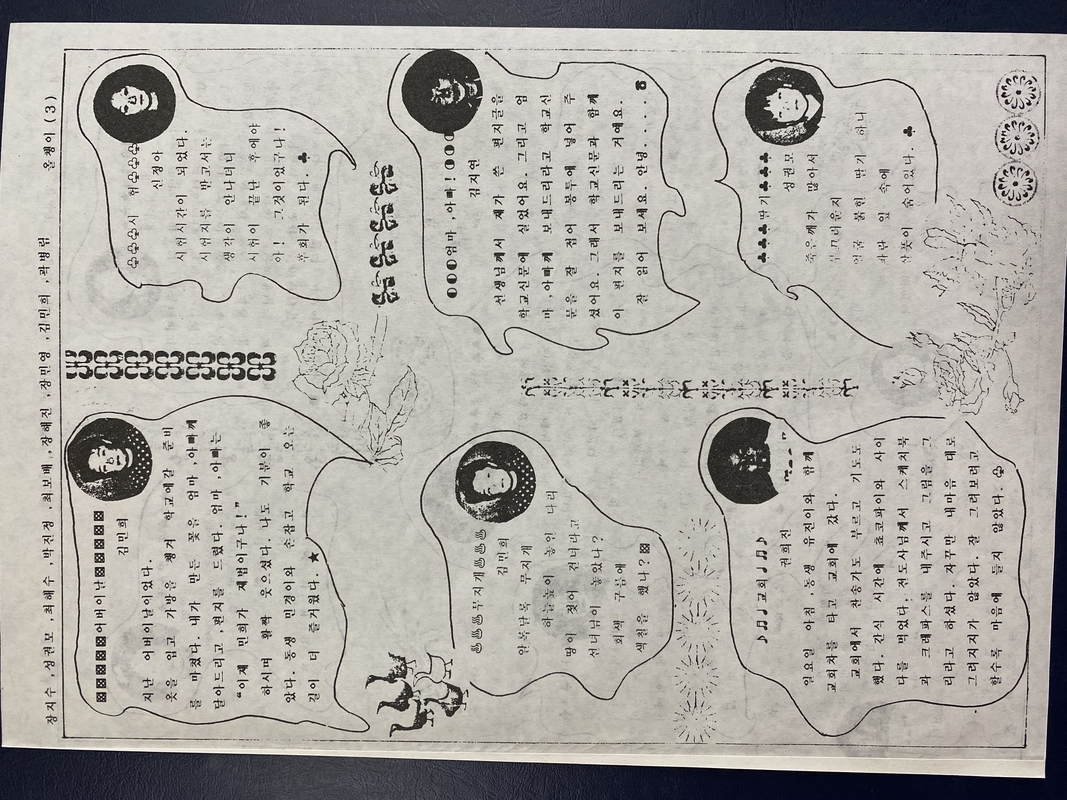 장지수 ,성권모 ,최혜수 ,박진정 ,최보배 ,장혜진 ,장민영 ,김민희 ,곽병림 올챙이 (3)
어버이날
김민희
지난 어버이날이었다.
옷을 입고 가방을 챙겨 학교에갈 준비
를 마쳤다. 내가 만든 꽃을 엄마 ,아빠께
달아드리고 ,편지를 드렸다. 엄마 ,아빠는
“이제 민희가 제법이구나!”
하시며 활짝 웃으셨다. 나도 기분이 좋
았다. 동생 민경이와 손잡고 학교 오는
길이 더 즐거웠다. ★
♧♧♧시 험♧♧♧
신정아
시험시간이 되었다.
시험지를 받고서는
생각이 안나더니
시험이 끝난 후에야
아 ! 그것이었구나!
후회가 된다. ♣
무지개
김민희
알록달록 무지개
하늘높이 놓인 다리
땅이 젖어 건너라고
선녀님이 놓았나?
회색 구름에
색칠을 했나?
엄마 ,아빠!
김지연
선생님께서 제가 쓴 편지글을
학교신문에 실었어요. 그리고 엄
마 ,아빠께 보내드리라고 학교신
문을 잘 접어 봉투에 넣어 주
셨어요. 그래서 학교신문과 함께
이 편지를 보내드리는 거예요.
잘 읽어 보세요. 안녕. . . . .
♪♫♩교회♩♫♪
권희진
일요일 아침 ,동생 유진이와 함께
교회차를 타고 교회에 갔다.
교회에서 찬송가도 부르고 기도도
했다. 간식 시간에 초코파이와 사이
다를 먹었다. 전도사님께서 스케치북
과 크레파스를 내주시고 그림을 그
리라고 하셨다. 자꾸만 내마음 대로
그려지지가 않았다. 잘 그려보려고
할수록 마음에 들지 않았다. ♧
♣♣♣딸기♣♣♣
성권모
죽은깨가 많아서
부끄러울지
얼굴 붉힌 딸기 하나
파란 잎 속에
숨어있다. ♣